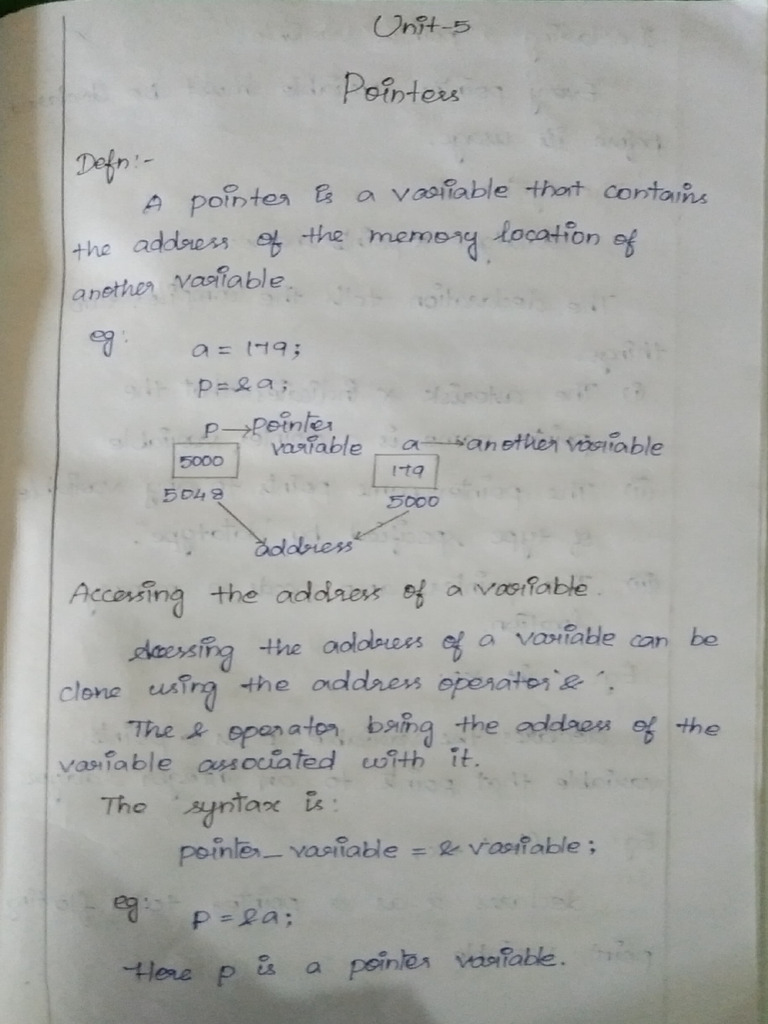 Unit-5
Pointers
Defn:-
A pointer is a variable that contains
the address of the memory location of
another variable.
eg:
a = 179;
p = &a;
p → pointer variable
a → another variable
5000
179
5048
5000
address
Accessing the address of a variable.
Accessing the address of a variable can be
done using the address operator '&'.
The & operator bring the address of the
variable associated with it.
The syntax is:
pointer_variable = & variable;
eg:
p = &a;
Here p is a pointer variable.